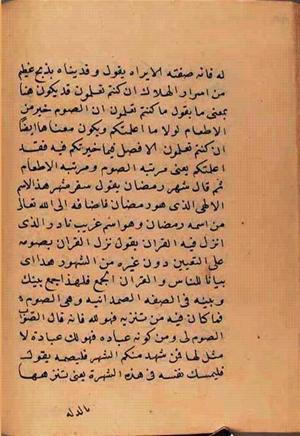 له فانه صفته الا يراه يقول وفديناه بذبح عظيم
من اسرار الهلاك ان كنتم تعلمون قد يكون هنا
بمعنى ما يقول ما كنتم تعلمون ان الصوم خير من
الاطعام لولا ما اعلمتكم ويكون معناها ايضا
ان كنتم تعلمون الافضل فيما خيرتكم فيه فقد
اعلمتكم يعنى مرتبه الصوم ومرتبه الاطعام
ثم قال شهر رمضان يقول شهر هذا الاسم
الالهى الذى هو رمضان فاضافه الى الله تعالى
من اسمه رمضان وهو اسم غريب نادر الذى
انزل فيه القران يقول نزل القران بصومه
على التعيين دون غيره من الشهور هدى اى
بيانا للناس والقران الجمع فلهذا جمع بينك
وبينه فى الصفه الصمدانيه وهى الصوم
فما كان فيه من تنزيه فهو لله فانه قال
الصوم لى ومن كونه عباده فهو لك عبادة لا
مثل لها فمن شهد منكم الشهر فليصمه يقول
فليمسك نفسه فى هذه الشهرة يعنى تنزهها
بالدله